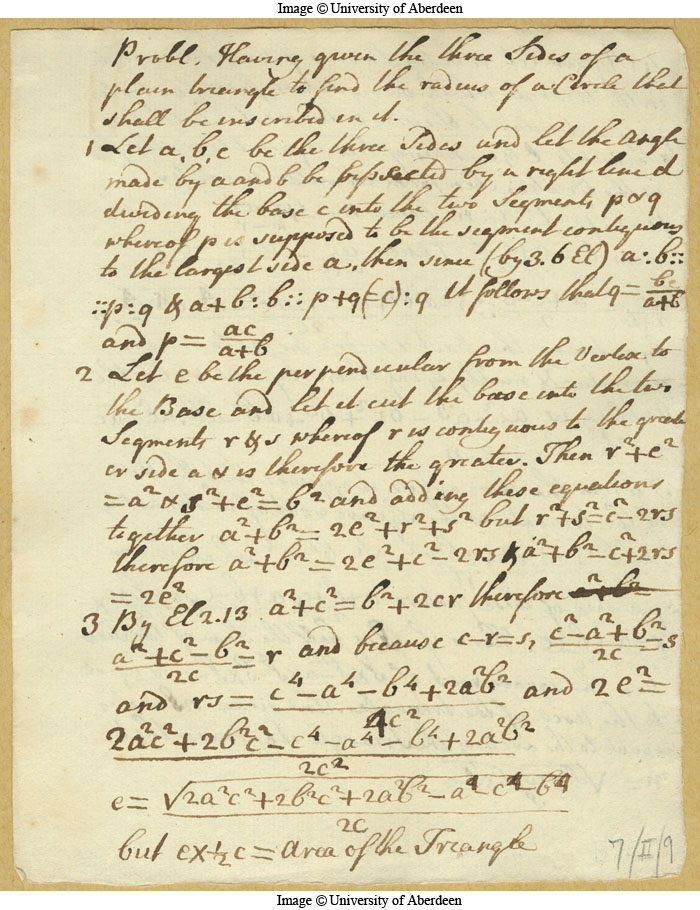 Image © University of Aberdeen
Probl. Having given the three Sides of a
plain triangle to find the radius of a Circle that
shall be inscribed in it.
1 Let a, b, c be the three Sides and let the angle
made by a and b be bissected by a right line d
dividing the base c into the two Segments p & q
whereof p is supposed to be the segment contiguous
to the largest side a, then since (by 3.6 El) a:b::
::p:q & a+b:b::p+q(=c):q it follows that q = bc/a+b
and p = ac/a+b
2 Let e be the perpendicular from the Vertex to
the Base and let it cut the base into the two
Segments r & s whereof r is contiguous to the great
er side a & is therefore the greater. Then r²+e²
=a² & s²+e²=b² and adding these equations
together a²+b²=2e²+r²+s² but r²+s²=c²-2rs
therefore a²+b²=2e²+c²-2rs & a²+b²-c²+2rs
=2e²
3 By El 2.13 a²+c²=b²+2cr therefore a²+b²=
a²+c²-b²/2c = r and because c-r=s, c²-a²+b²/2c = s
and rs = c⁴-a⁴-b⁴+2a²b²/4c² and 2e²=
2a²c²+2b²c²-c⁴-a⁴-b⁴+2a²b²/2c²
e = √2a²c²+2b²c²+2a²b²-a⁴-c⁴-b⁴/2c
but e×½c = Area of the Triangle
7/II/9
Image © University of Aberdeen